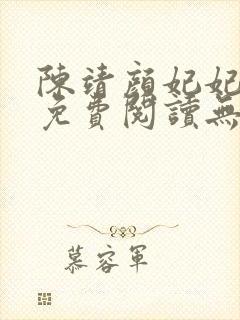 陳靖顏妃妃
免費閱讀無
慕容軍